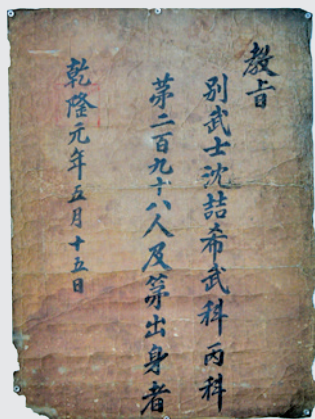 教旨
別武士沈喆希武科丙科
第二百九十八人及第出身者
乾隆元年五月十五日